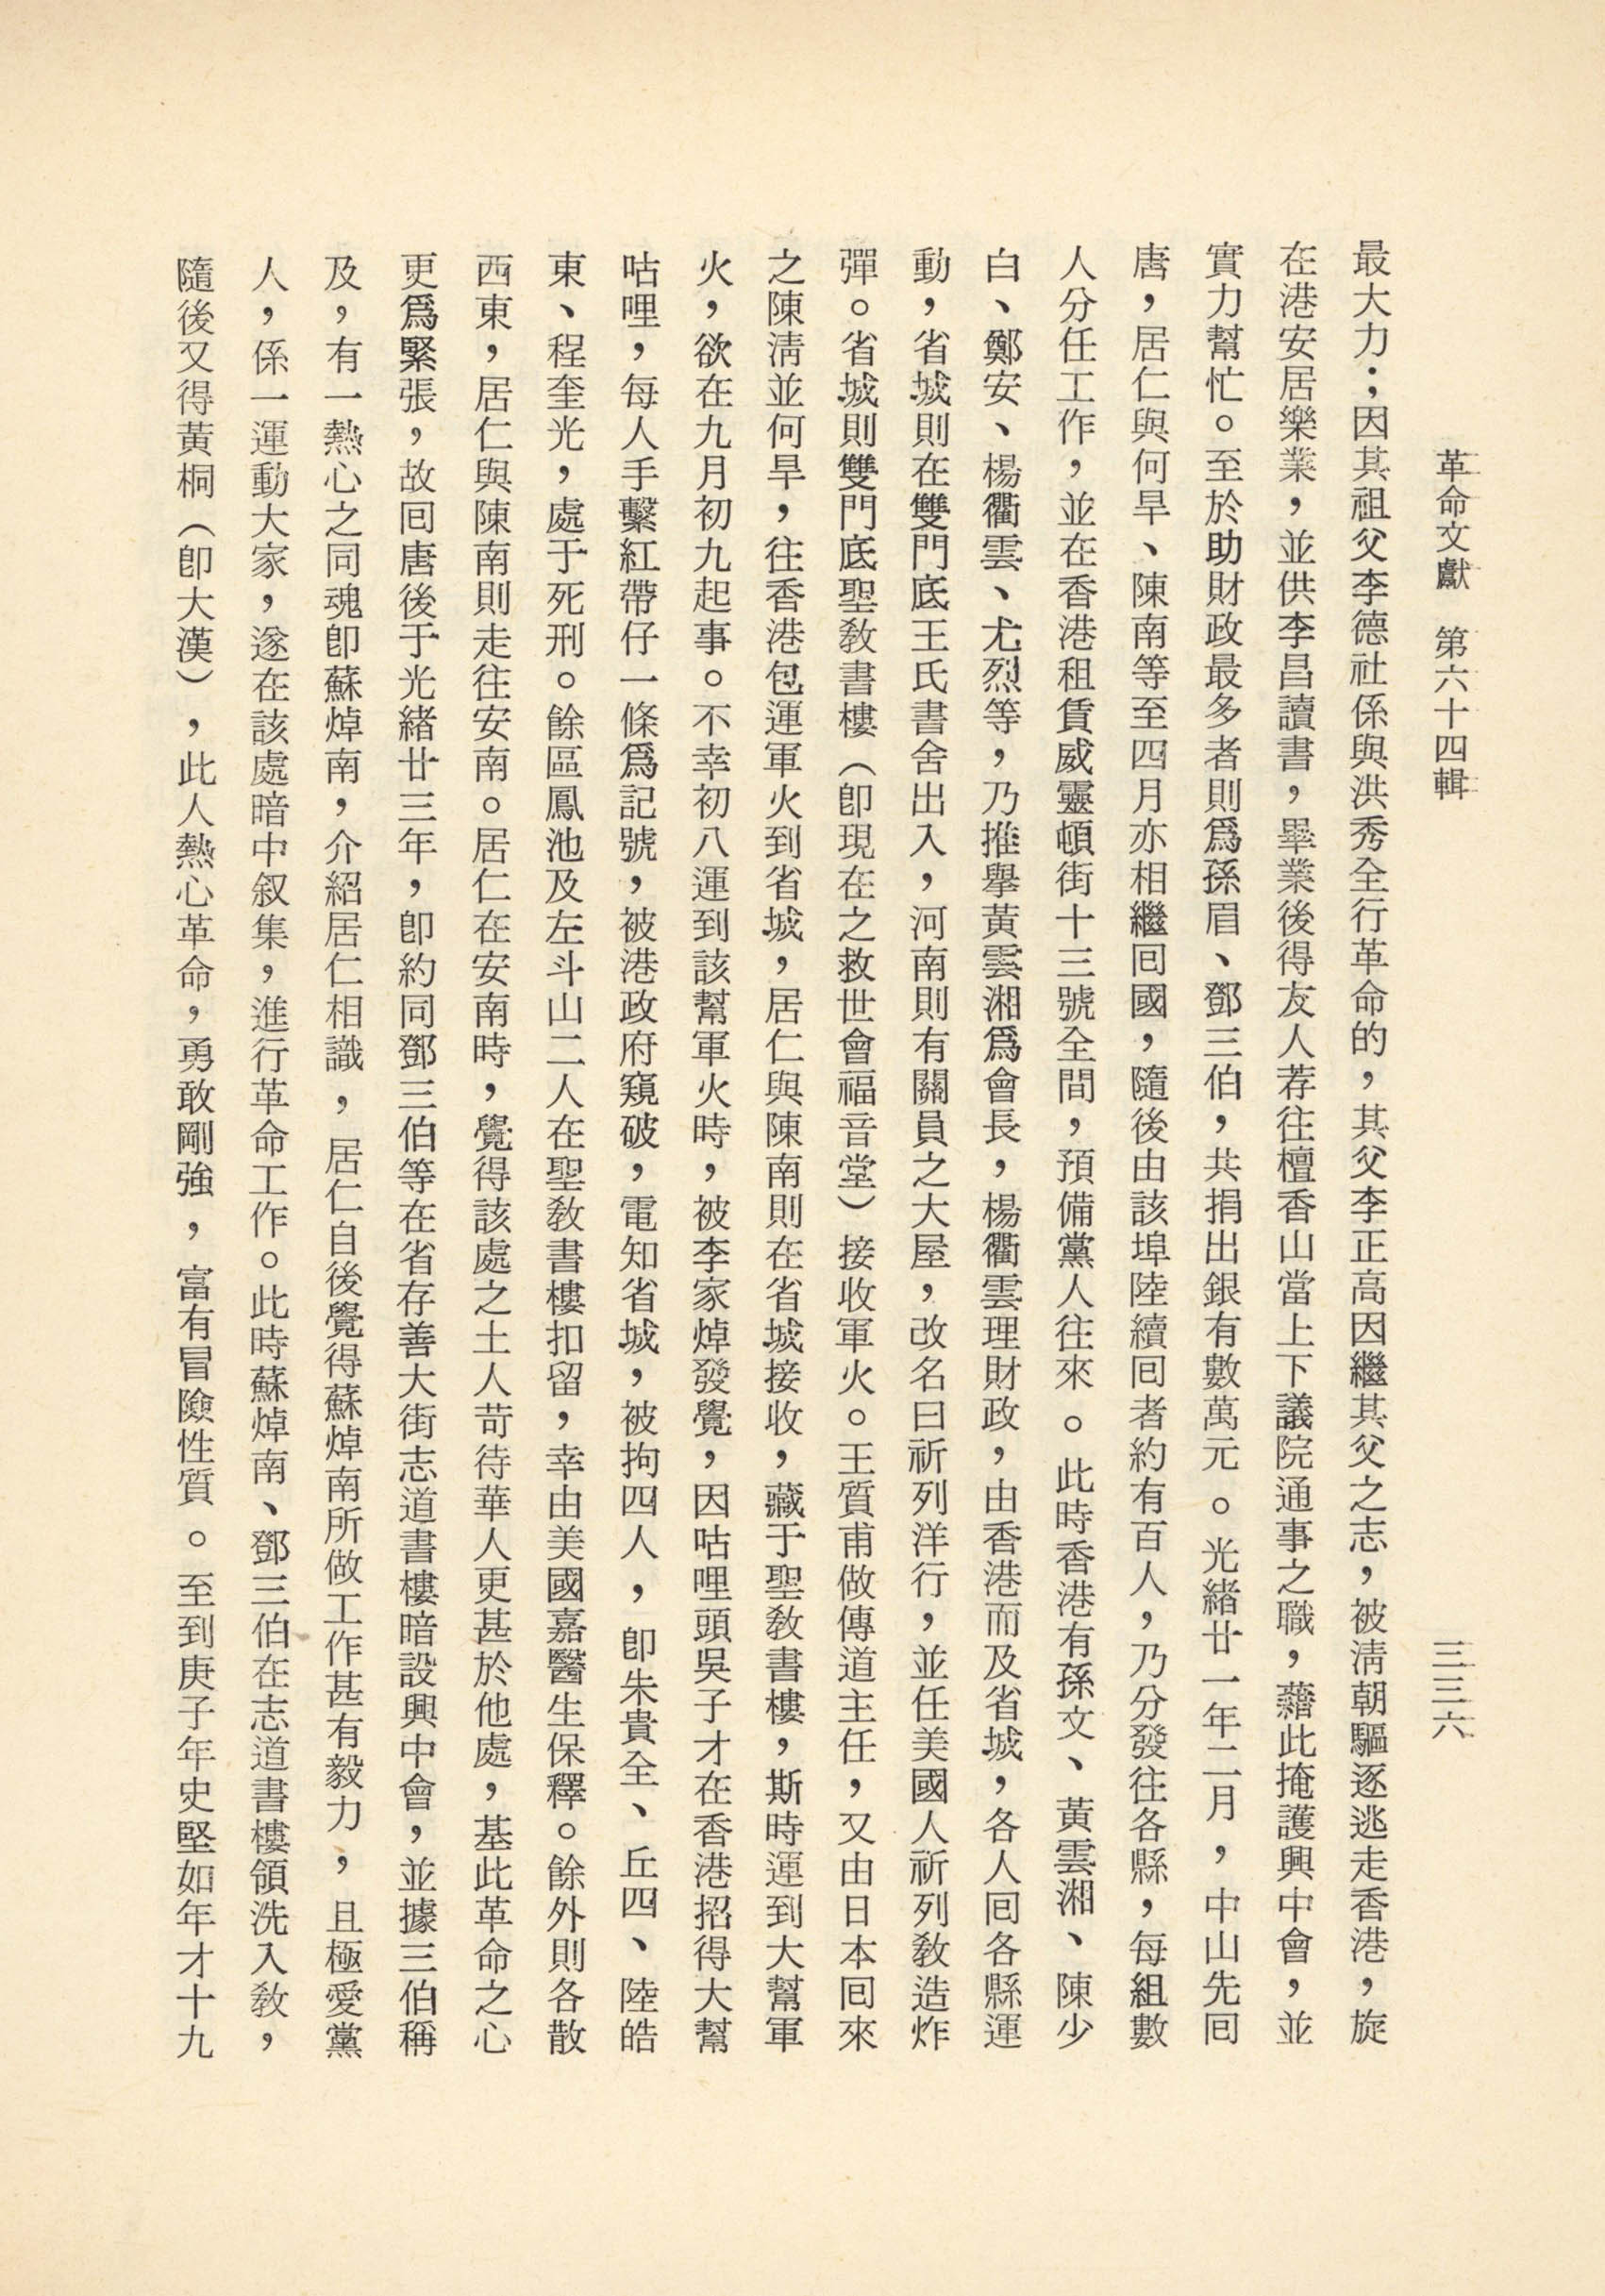 革命文獻　第六十四輯
三三六
最大力；因其祖父李德社係與洪秀全行革命的，其父李正高因繼其父之志，被清朝驅逐逃走香港，旋
在港安居樂業，並供李昌讀書，畢業後得友人荐往檀香山當上下議院通事之職，藉此掩護興中會，並
實力幫忙。至於助財政最多者則爲孫眉、鄧三伯，共捐出銀有數萬元。光緒廿一年二月，中山先囘
唐，居仁與何早、陳南等至四月亦相繼囘國，隨後由該埠陸續囘者約有百人，乃分發往各縣，每組數
人分任工作，並在香港租賃威靈頓街十三號全間，預備黨人往來。此時香港有孫文、黃雲湘、陳少
白、鄭安、楊衢雲、尤烈等，乃推舉黃雲湘爲會長，楊衢雲理財政，由香港而及省城，各人囘各縣運
動，省城則在雙門底王氏書舍出入，河南則有關員之大屋，改名曰祈列洋行，並任美國人祈列教造炸
彈。省城則雙門底聖教書樓（卽現在之救世會福音堂）接收軍火。王質甫做傳道主任，又由日本囘來
之陳清並何早，往香港包運軍火到省城，居仁與陳南則在省城接收，藏于聖教書樓，斯時運到大幫軍
火，欲在九月初九起事。不幸初八運到該幫軍火時，被李家焯發覺，因咕哩頭吳子才在香港招得大幫
咕哩，每人手繫紅帶仔一條爲記號，被港政府窺破，電知省城，被拘四人，卽朱貴全、丘四、陸皓
東、程奎光，處于死刑。餘區鳳池及左斗山二人在聖教書樓扣留，幸由美國嘉醫生保釋。餘外則各散
西東，居仁與陳南則走往安南。居仁在安南時，覺得該處之土人苛待華人更甚於他處，基此革命之心
更爲緊張，故囘唐後于光緒廿三年，卽約同鄧三伯等在省存善大街志道書樓暗設興中會，並據三伯稱
及，有一熱心之同魂卽蘇焯南，介紹居仁相識，居仁自後覺得蘇焯南所做工作甚有毅力，且極愛黨
人，係一運動大家，遂在該處暗中叙集，進行革命工作。此時蘇焯南、鄧三伯在志道書樓領洗入教，
隨後又得黃桐（卽大漢），此人熱心革命，勇敢剛強，富有冒險性質。至到庚子年史堅如年才十九